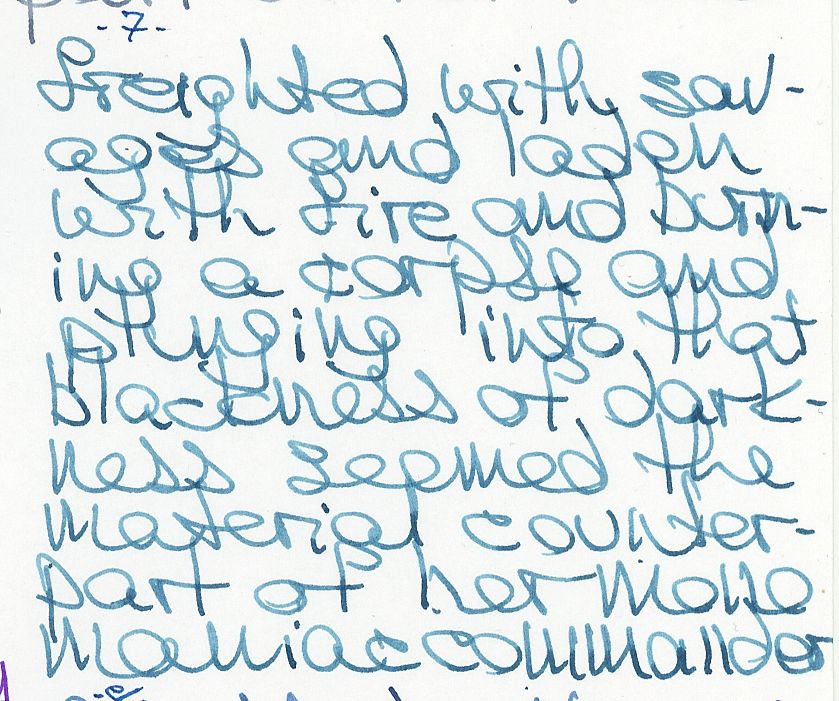 -7-
freighted with sav-
ages and laden
with fire and burn-
ing a corpse and
plunging into that
blackness of dark-
ness seemed the
material counter-
part of her mono
maniac commander